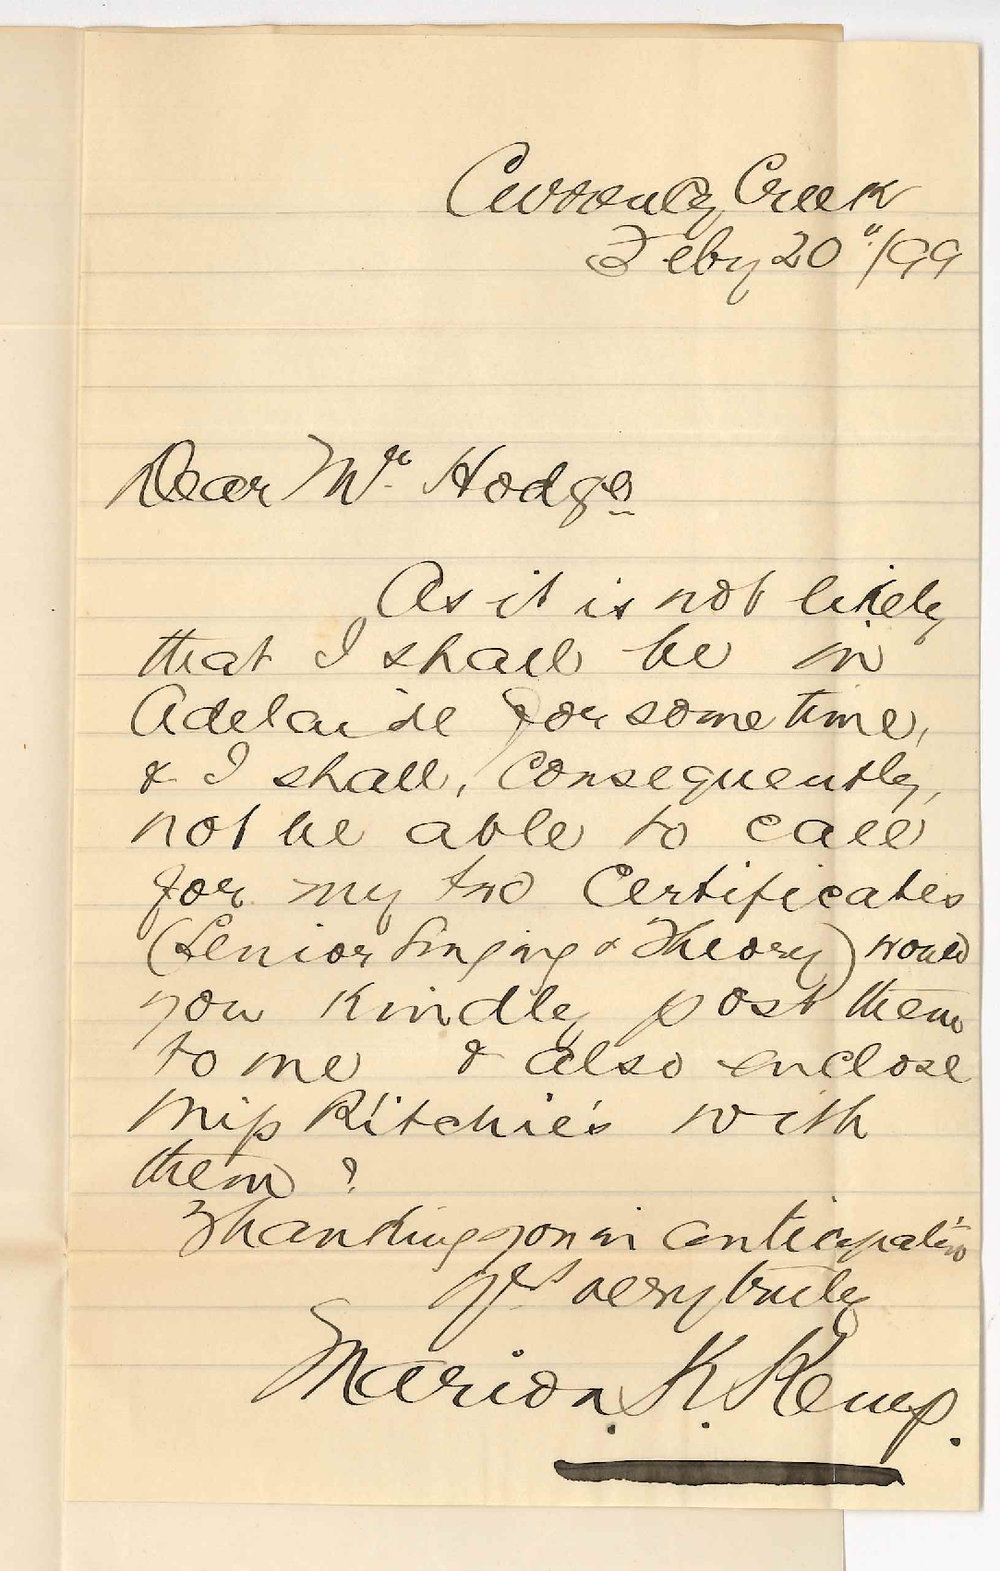 Currency Creek
Feby 20"/99
Dear Mr. Hodge
As it is not likely
that I shall be in
Adelaide for some time,
& I shall, consequently,
not be able to call
for my two Certificates
(Senior Singing & Theory) would
you kindly post them
to me & also enclose
Miss Ritchie's with
them?
Thanking you in anticipation
Yrs very truly
Marion. K. Kemp.